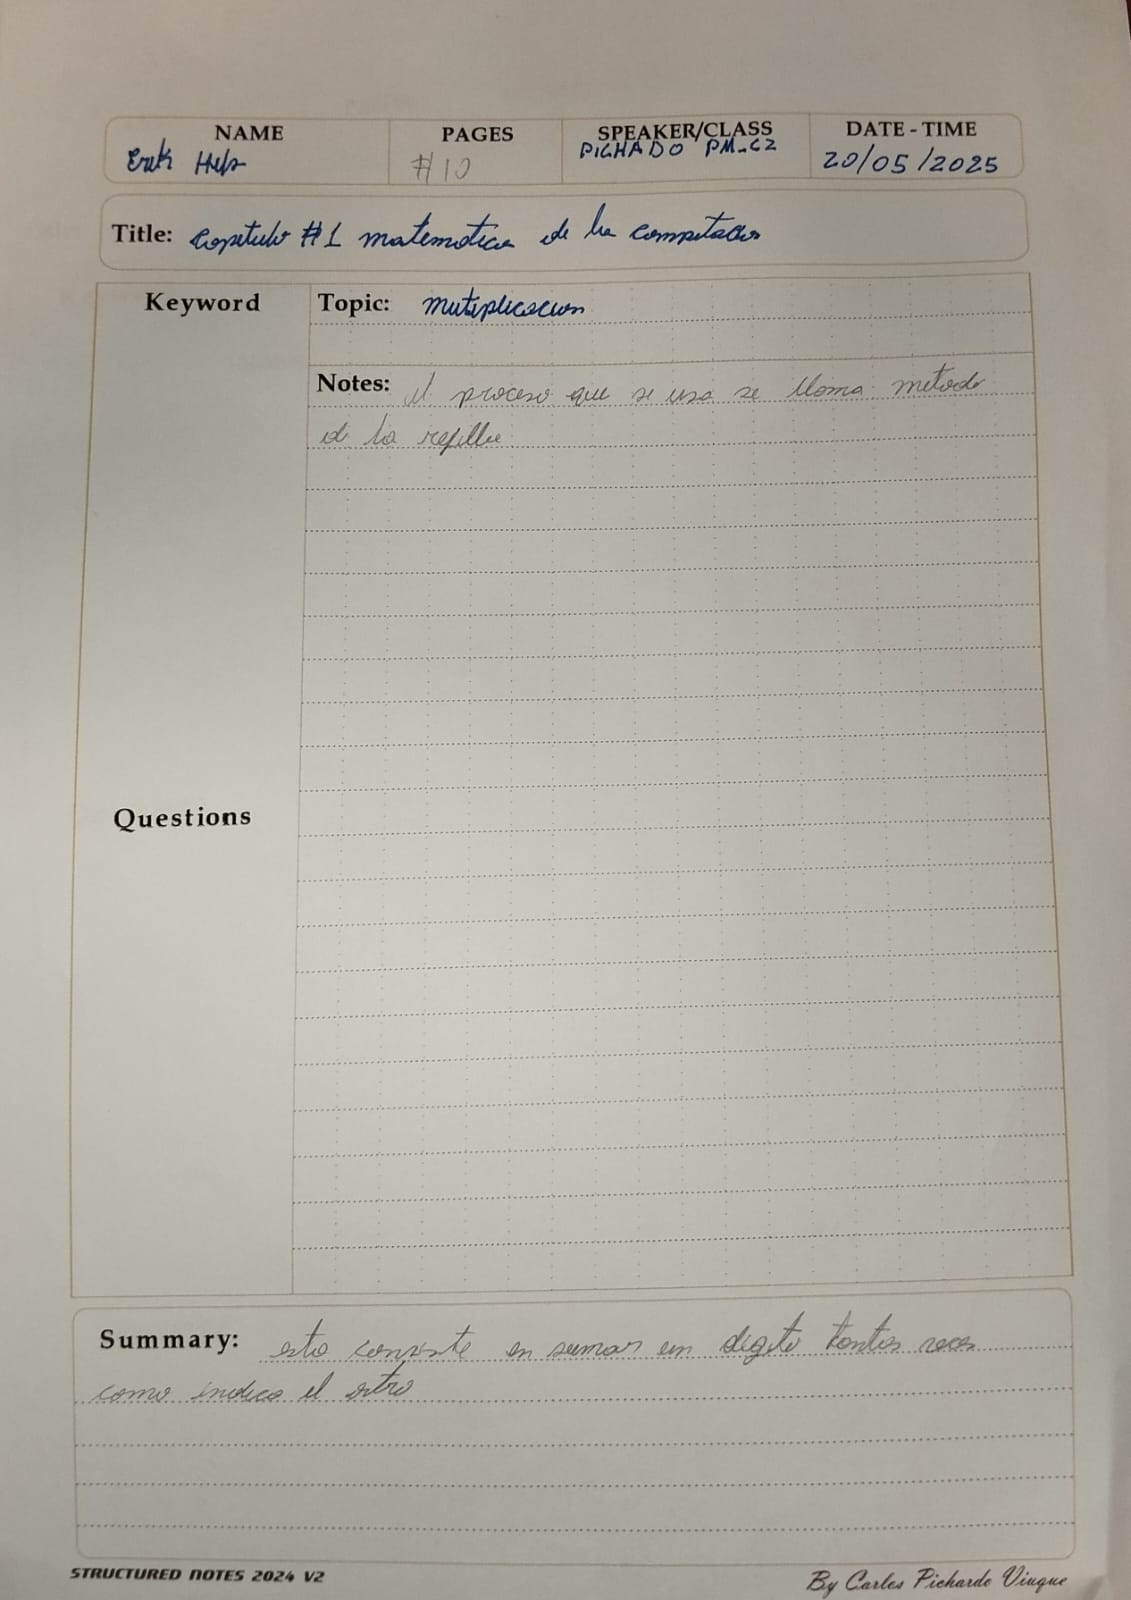 NAME PAGES SPEAKER/CLASS DATE - TIME
Erik #10 PICHADO PM-C2 20/05/2025
Title: Capitulo #1 matematica de la computador
Keyword Topic: Mutiplicacion
Notes: el proceso que se usa se llama metodo
de la rejilla
Questions
Summary: esto consiste en sumar un digito tantas veces
como indica el otro
STRUCTURED NOTES 2024 V2 By Carlos Pichardo Viuque